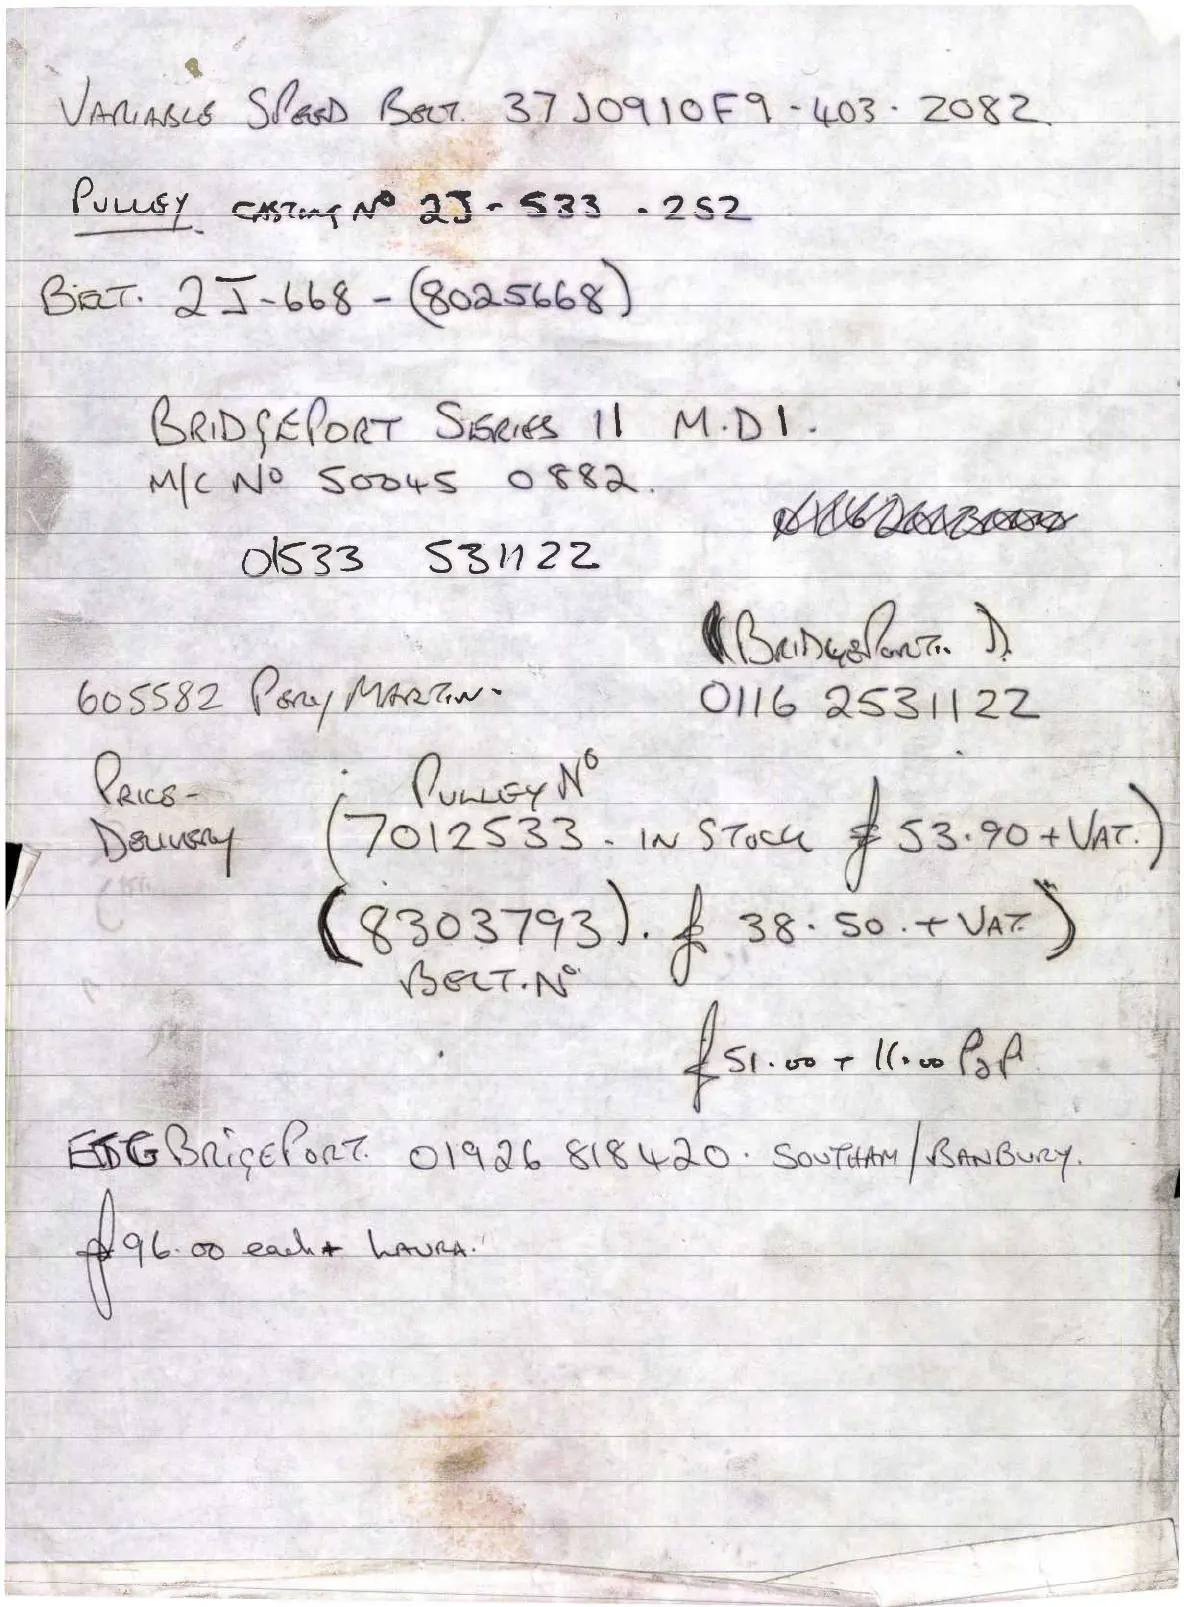 VARIABLE SPEED BELT. 37J0910F9-403.2082
PULLEY CASTING Nº 2J-533.252
BELT. 2J-668-(8025668)
BRIDGEPORT SERIES 11 M.D1.
M/C Nº 50045 0882.
01533 531122
(BRIDGEPORT.)
605582 MARTIN.
0116 2531122
PRICE-
PULLEY Nº
DELIVERY (7012533. IN STOCK £53.90+VAT.)
(8303793). £38.50.+VAT)
BELT.Nº
£51.00+11.00 P&P
BRIGEPORT. 01926 818420. SOUTHAM/BANBURY.
£96.00 each+ LAURA.